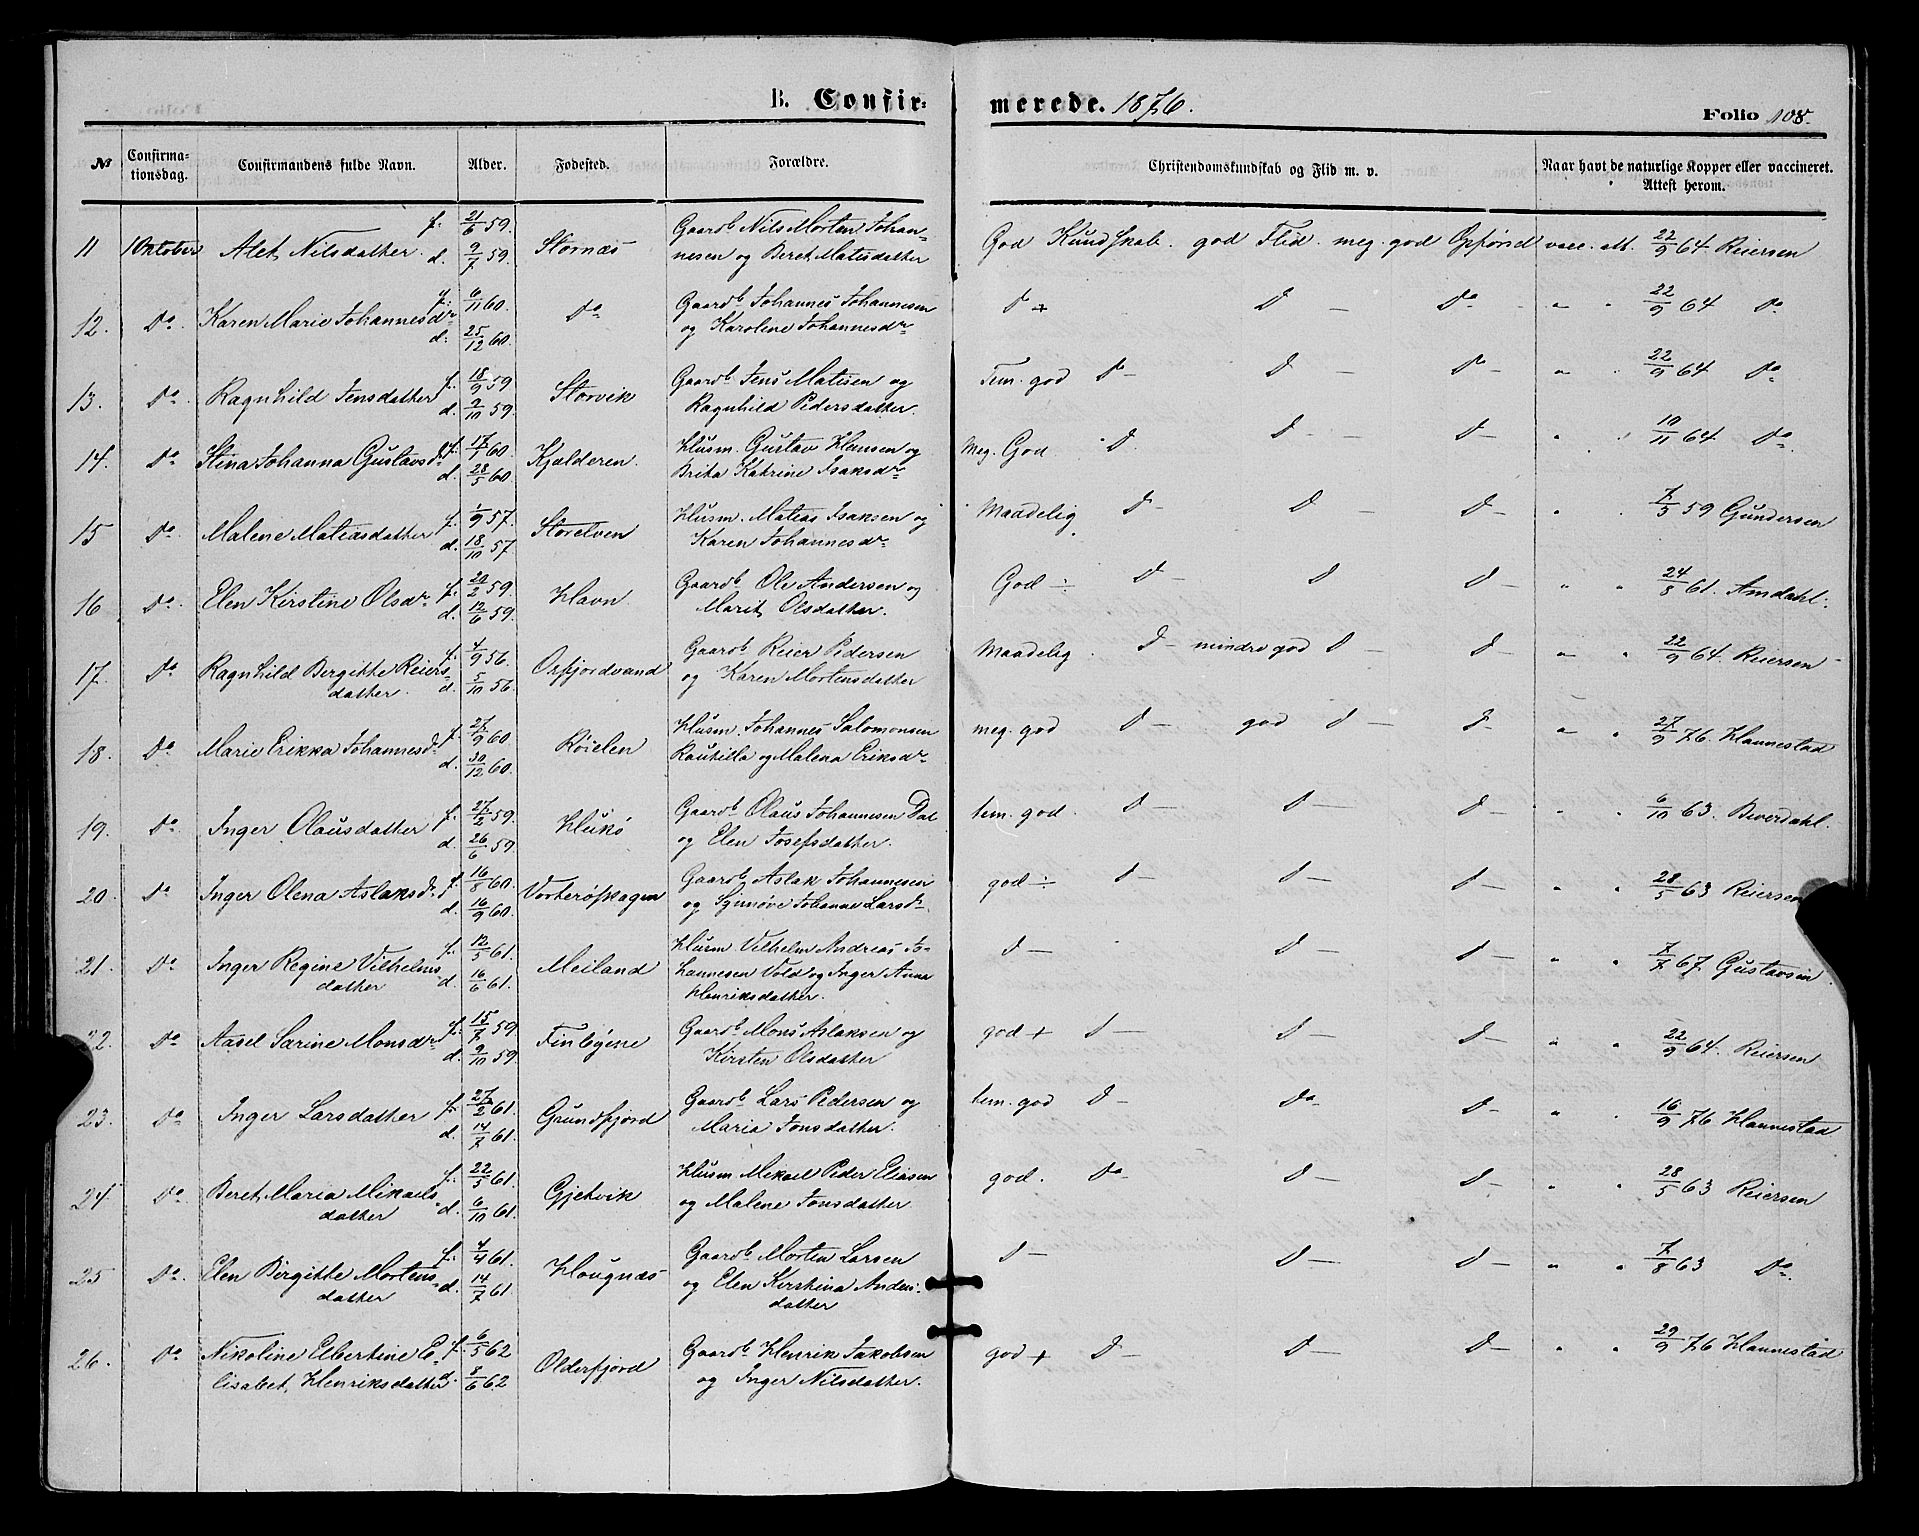 B. Confir- merede. 1876.
Folio 108.
№ Confirma- tionsdag. Confirmandens fulde Navn. Alder. Fødested. Forældre. Christendomskundskab og Flid m. v. Naar havt de naturlige Kopper eller vaccineret. Attest herom.
11 1 Oktober Alet Nilsdatter f. 21/6 59. d. 9/7 59. Stornæs Gaardb Nils Morten Johan-
nesen og Beret Matisdatter God Kundskab. god Flid. meg. god Opførsel vacc. att. 22/9 64 Reiersen
12. Do. Karen Marie Johannesdr f. 6/11 60. d. 25/12 60. Do Gaardb Johannes Johannesen
og Karolene Johannesdr D + D — Do - " " 22/9 64 Do.
13. Do. Ragnhild Jensdatter f. 18/9 59. d. 9/10 59. Storvik Gaardb Jens Matisen og
Ragnhild Pedersdatter. Tem. god D — D — D — " " 22/9 64 Do
14. Do Stina Johanna Gustavsdr f. 17/1 60. d. 28/5 60. Kjelderen. Husm. Gustav Hansen og
Brita Katrine Isaksdr Meg. God D. D — D — " 10/11 64 Do.
15 Do. Malene Matiasdatter f. 1/9 57. d. 18/10 57 Storelven Husm. Matias Isaksen og
Karen Johannesdr Maadelig D — D — D — " . 7/5 59 Gundersen
16. Do. Elen Kirstine Olsdr f. 20/2 59. d. 12/6 59. Havn. Gaardb Ole Andersen og
Marit Olsdatter. God ÷ D — D D — " " 24/8 61. Amdahl.
17. Do Ragnhild Bergitte Reiers-
datter. f. 4/9 56. d. 5/10 56. Oxfjordvand Gaardb Reier Pedersen
og Karen Mortensdatter Maadelig D — mindre god D — D — " " 22/9 64. Reiersen
18. Do. Marie Erikka Johannesdr f. 27/9 60. d. 30/12 60. Røielen Husm. Johannes Salomonsen
Rautilla og Malena Eriksdr meg. god D — god D — D — " " 27/9 76. Hannestad
19. Do. Inger Olausdatter f. 27/2 59. d. 26/6 59. Hukø Gaardb Olaus Johannesen Dal
og Elen Josefsdatter. tem. god. D — D — D — " " 6/10 63. Beverdahl.
20. Do. Inger Olena Aslaksdr f. 16/8 60. d. 16/9 60. Vorterøskagen Gaardb Aslak Johannesen
og Synnøve Johanne Larsdr. god ÷ D — D — D — " " 28/5 63 Reiersen
21. Do Inger Regine Vilhelms-
datter f. 12/5 61. d. 16/6 61. Meiland Husm Vilhelm Andreas Jo-
hannesen Vold og Inger Anna
Henriksdatter. D — D — D — " . 7/7 67. Gustavsen
22. Do Aasel Sarine Monsdr f. 15/7 59 d. 9/10 59. Finbyene Gaardb Mons Aslaksen og
Kirsten Olsdatter god + D — D — D — " " 22/9 64. Reiersen
23. Do Inger Larsdatter f. 27/2 61. d. 14/7 61. Grundfjord Gaardb Lars Pedersen og
Maria Jonsdatter. tem. god D — Do D — " " 16/9 76 Hannestad
24. Do. Beret Maria Mikaels-
datter f. 22/5 61. d. 6/10 61. Gjetvik Husm Mikael Peder Eliasen
og Malene Jonsdatter. god. Do D — D — " " 28/5 63 Reiersen
25 Do. Elen Birgitte Mortens-
datter f. 4/4 61. d. 14/7 61 Hougnæs Gaardb Morten Larsen
og Elen Kirstina Anders-
datter D — D — D — " " 7/8 63 Do.
26. Do Nikoline Elbertine E-
lisabet Henriksdatter f. 6/5 62 d. 8/6 62 Olderfjord Gaardb Henrik Jakobsen
og Inger Nilsdatter. god + D — D — D — " " 29/9 76 Hannestad